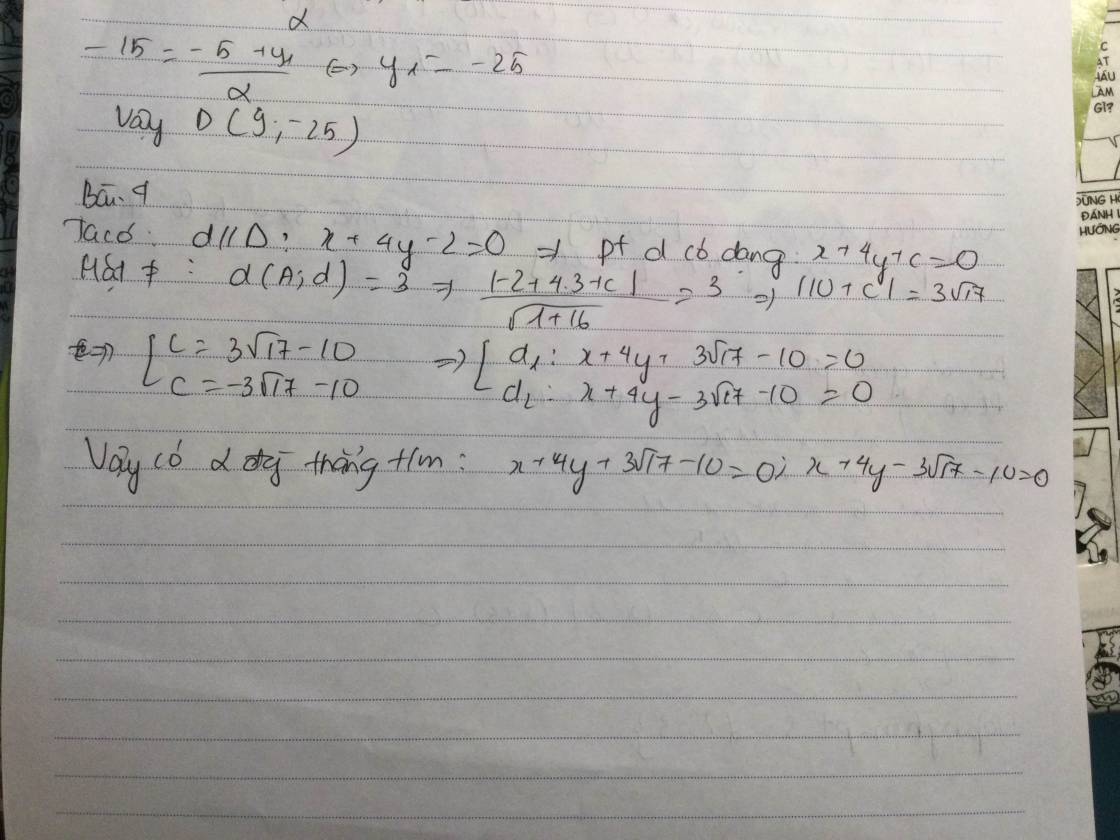 2
-15 = (-5 + y₁)/2 ⇔ y₁ = -25
Vậy D (9; -25)
Bài 4
Ta có: d // Δ: x + 4y - 2 = 0 ⇒ pt d có dạng: x + 4y + c = 0
Mặt ≠: d(A; d) = 3 ⇒ |-2 + 4.3 + c|/√(1+16) = 3 ⇒ |10 + c| = 3√17
⇔ [ c = 3√17 - 10 ⇒ [ d₁: x + 4y + 3√17 - 10 = 0
c = -3√17 - 10 d₂: x + 4y - 3√17 - 10 = 0
Vậy có 2 đg thẳng t/m: x + 4y + 3√17 - 10 = 0; x + 4y - 3√17 - 10 = 0
LÀM
GÌ?
ĐÁNH
HƯỚNG